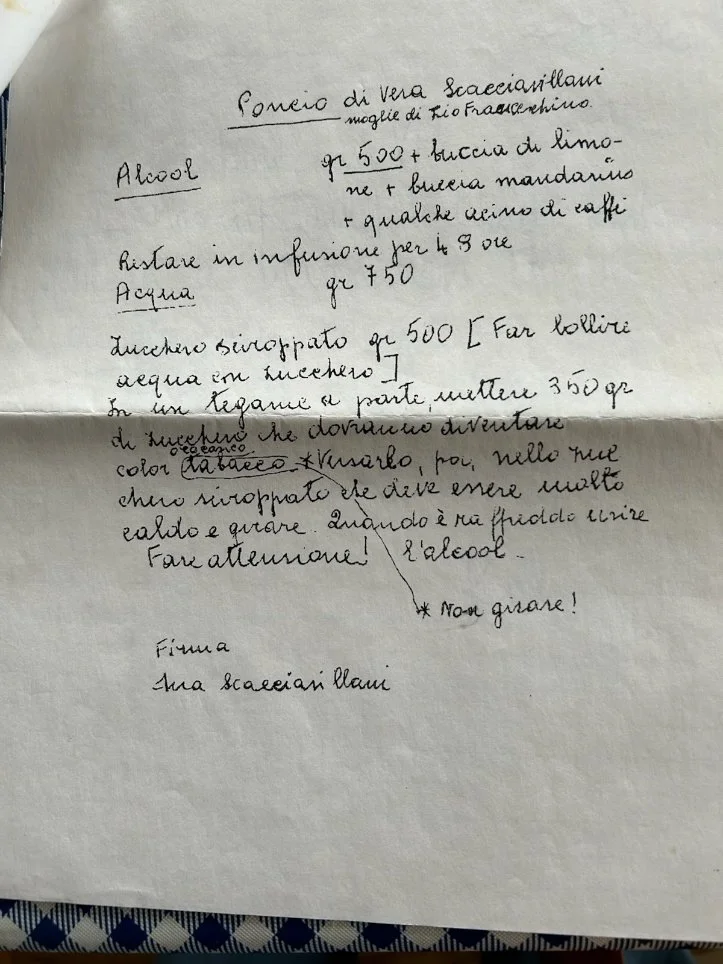 Poncio di Vera Scacciasillani
moglie di Zio Franceschino.
Alcool gr 500 + buccia di limo-
ne + buccia mandarino
+ qualche acino di caffè
Restare in infusione per 48 ore
Acqua gr 750
Zucchero sciroppato gr 500 [Far bollire
acqua con zucchero]
In un tegame a parte, mettere 350 gr
di zucchero che dovranno diventare
color tabacco * Versarlo, poi, nello zuc
chero sciroppato che deve essere molto
caldo e girare. Quando è raffreddo unire
Fare attenzione! l'alcool.
* Non girare!
Firma
Scacciasillani